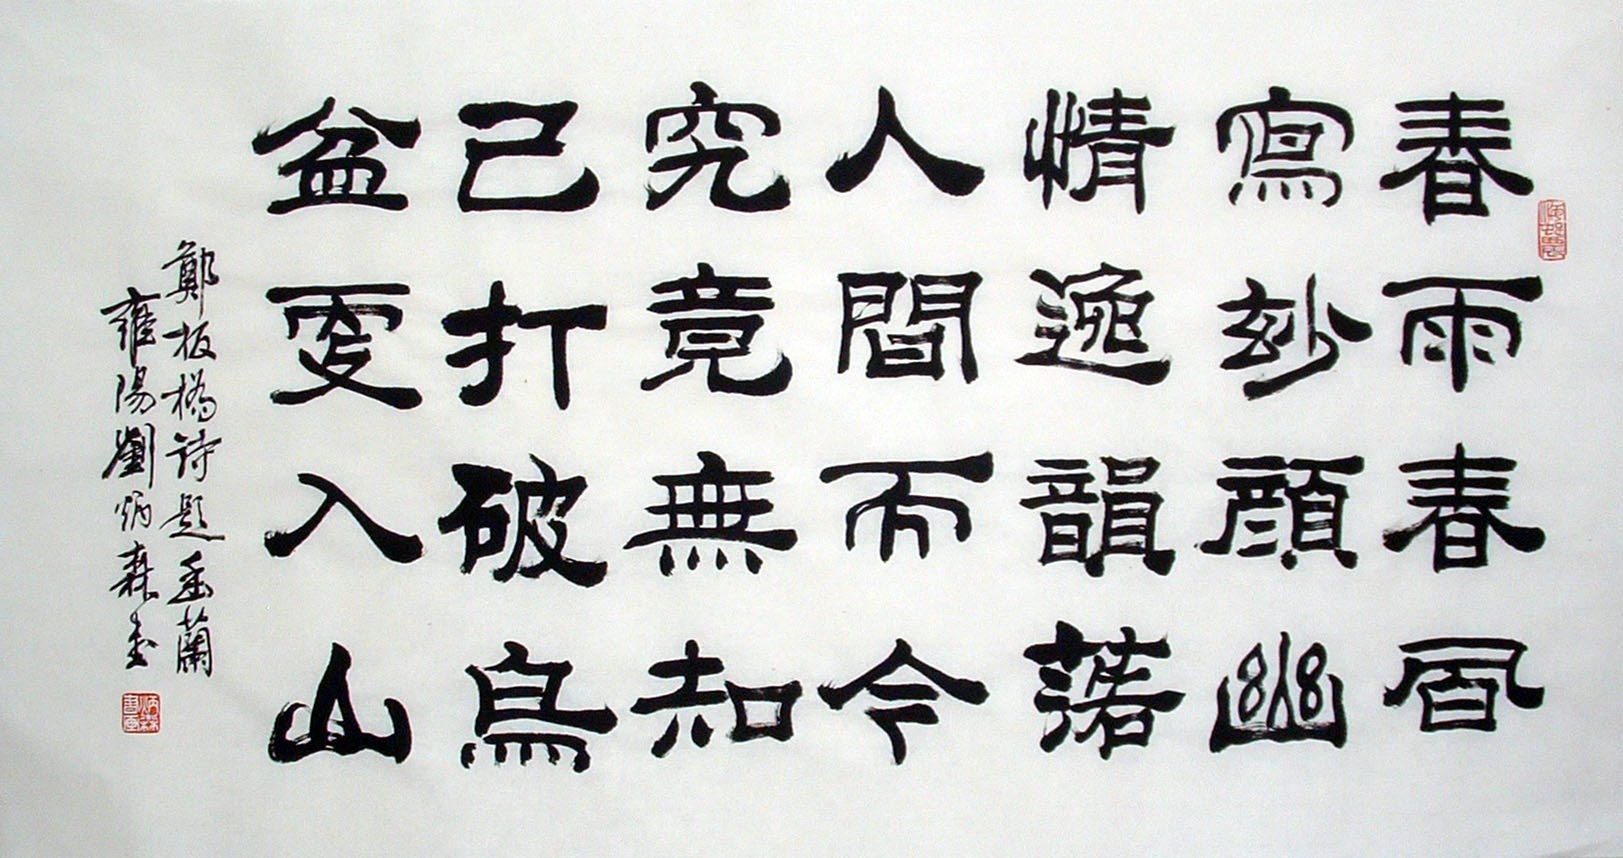 春雨春風
寫妙顔幽
情逸韻落
人間而今
究竟無知
己打破烏
盆更入山
鄭板橋詩題蘭
雍陽劉炳森書
炳森書画